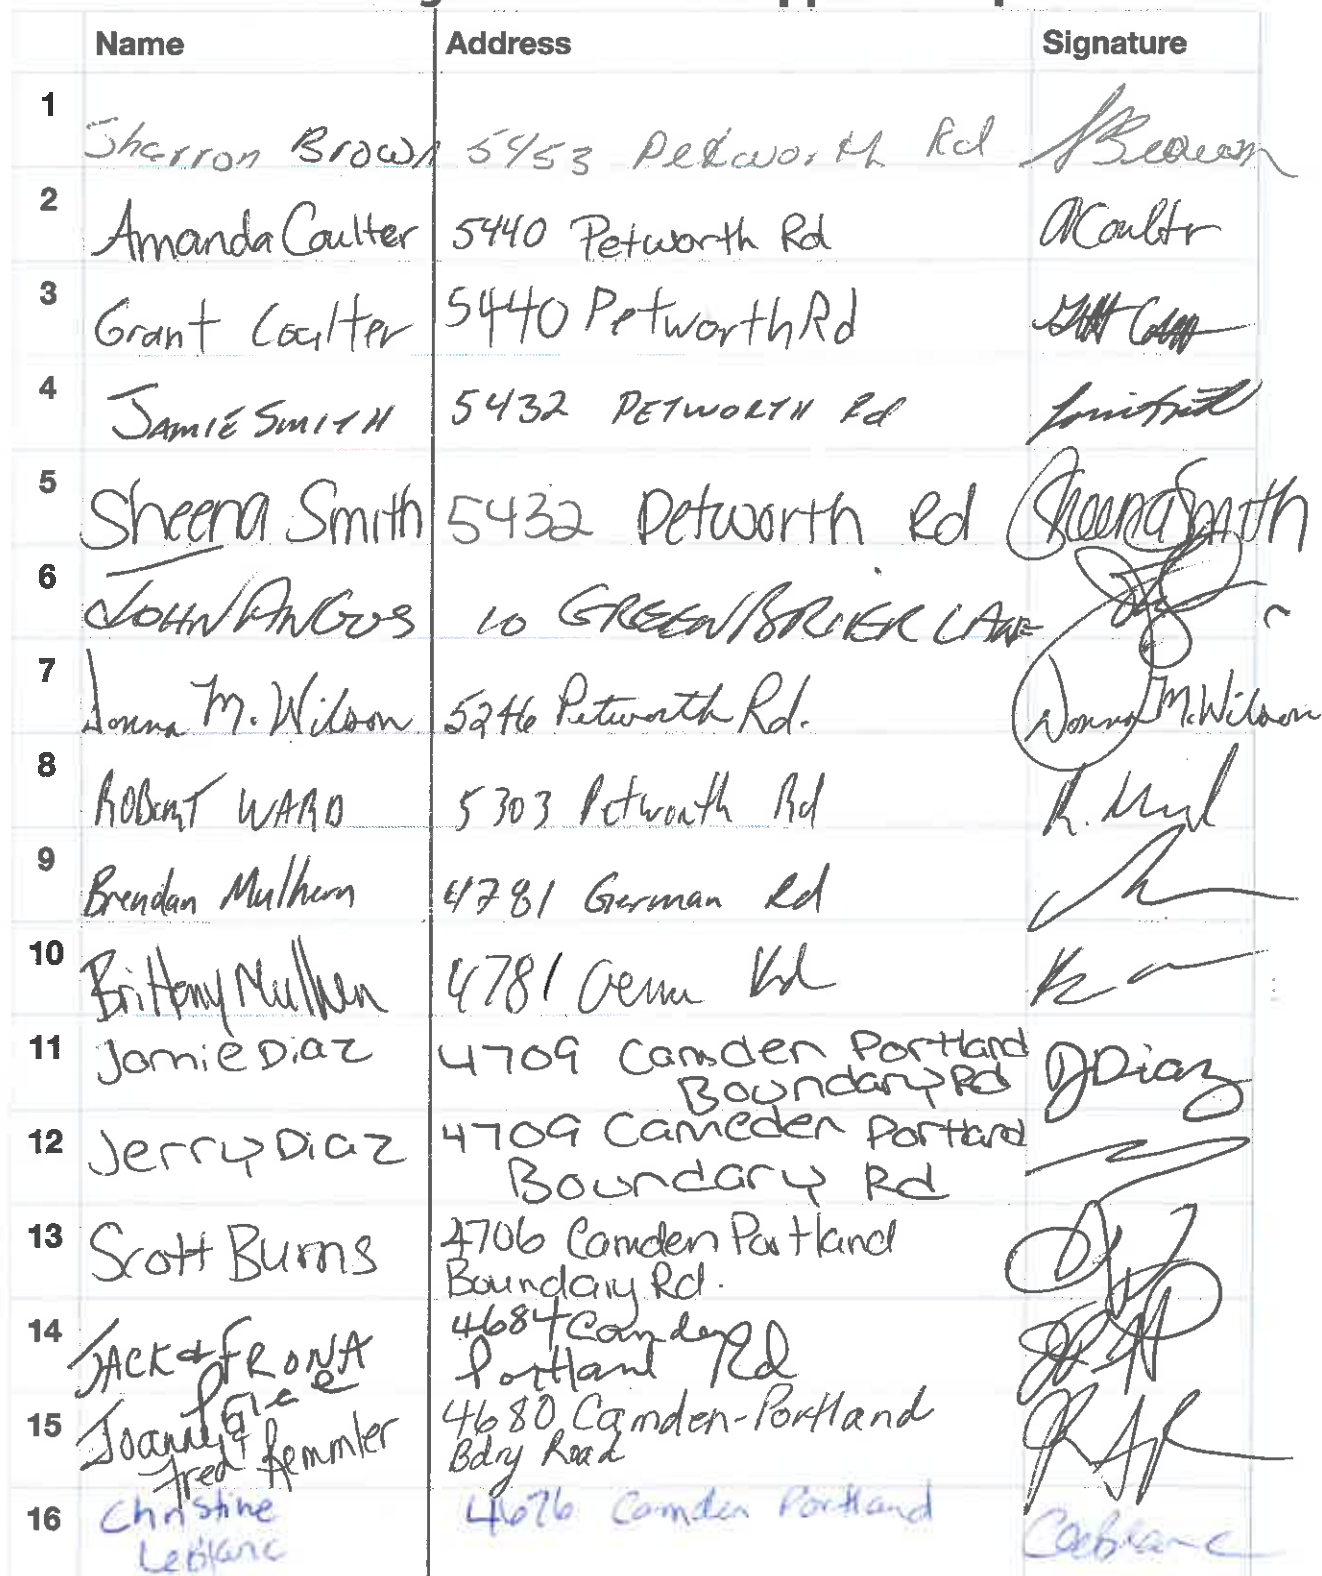 Name Address Signature
1 Sharron Brown 5453 Petworth Rd SBrown
2 Amanda Coulter 5440 Petworth Rd ACoulter
3 Grant Coulter 5440 Petworth Rd
4 JAMIE SMITH 5432 PETWORTH Rd
5 Sheena Smith 5432 Petworth Rd Sheena Smith
6 JOHN ANGUS 10 GREENBRIER LANE
7 Donna M. Wilson 5246 Petworth Rd. Donna M. Wilson
8 ROBERT WARD 5303 Petworth Rd
9 Brendan Mulhern 4781 German Rd
10 Brittany Mulhern 4781 Rd
11 Jamie Diaz 4709 Camden Portland
Boundary Rd JDiaz
12 Jerry Diaz 4709 Cameden Portland
Boundary Rd
13 Scott Burns 4706 Camden Portland
Boundary Rd.
14 JACK & FRONA 4684 Camden
Portland Rd
15 Joanne & 4680 Camden-Portland
Fred Remmler Bdry Road
16 Christine 4676 Camden Portland
Leblanc CLeblanc